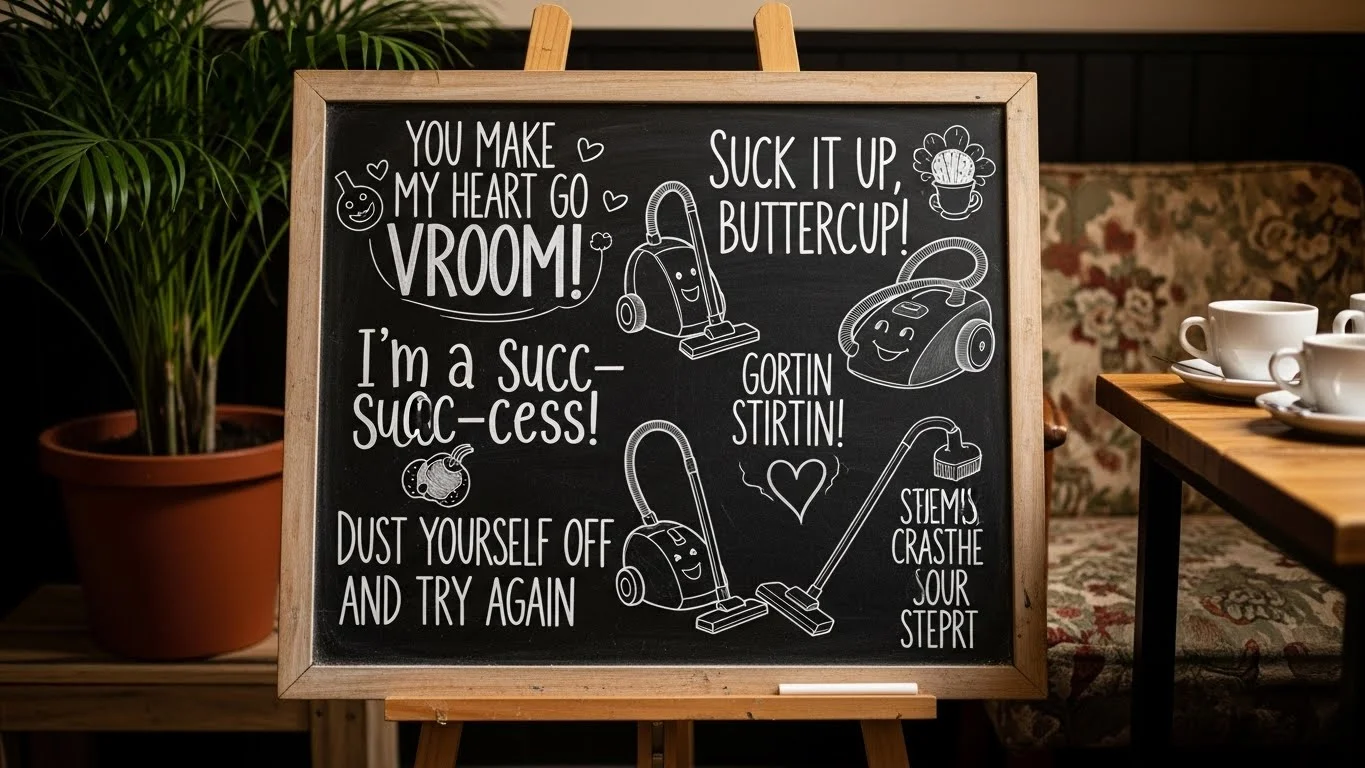 YOU MAKE
MY HEART GO
VROOM!
SUCK IT UP,
BUTTERCUP!
I'm a succ-
succ-cess!
GORTIN
STIRTIN!
DUST YOURSELF OFF
AND TRY AGAIN
CRASTHE
SOUR
STEPRT